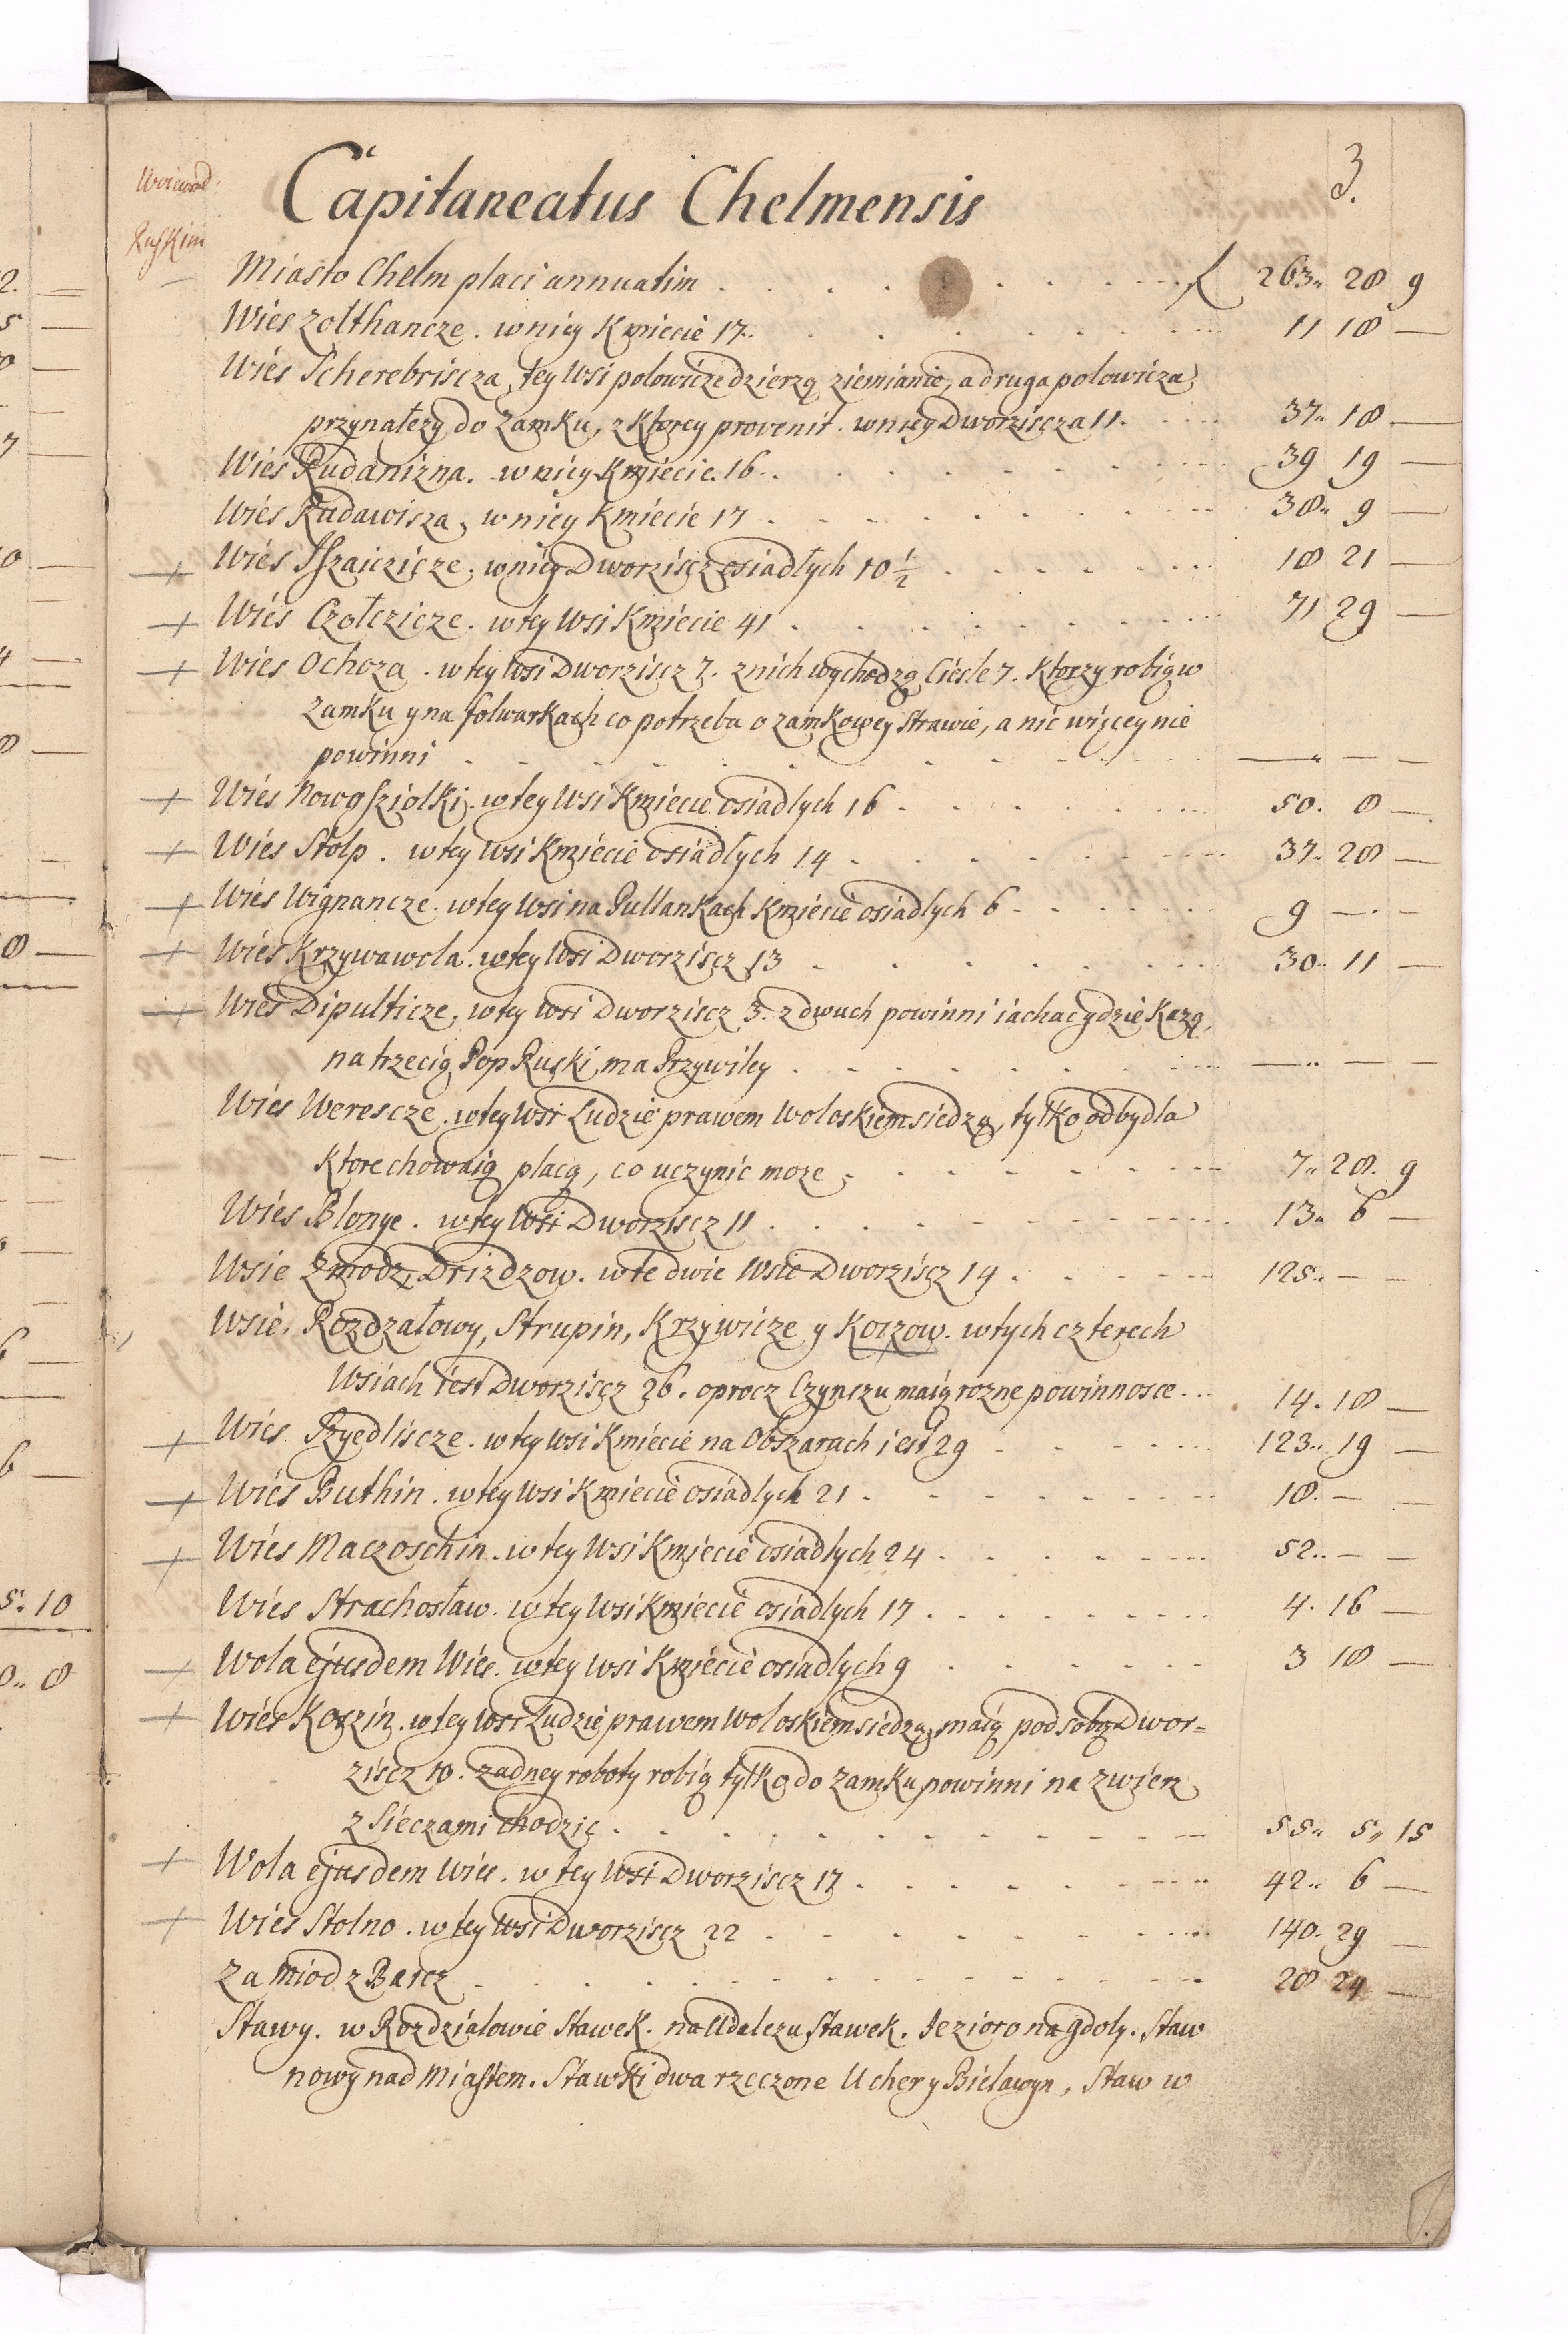 3.
Woiewod:
Ruskim
Capitaneatus Chelmensis
Miasto Chelm placi annuatim . . . . . . . . . . f 263„ 28 9
Wies Zolthancze. w niey Kmiecie 17. . . . . . . . 11 18 —
Wies Scherebriscza, tey Wsi polowicze dzierzą ziemianie, a druga polowicza
przynależy do Zamku, z ktorey provenit. w niey Dworziscza 11. . . . 37„ 18 —
Wies Rudanizna. w niey Kmiecie. 16. . . . . . . . 39 19 —
Wies Rudawisza, w niey Kmiecie 17 . . . . . . . . 38„ 9 —
+ Wies Sszaiczicze. w niey Dworziscz osiadłych 10 1/2 . . . . . . 18 21 —
+ Wies Czołczicze. w tey Wsi Kmiecie 41 . . . . . . . . 71 29 —
+ Wies Ochoza. w tey Wsi Dworziscz 7. z nich wychodzą Ciesle 7. Ktorzy robią w
Zamku y na folwarkach co potrzeba o zamkowey Strawie, a nic więcey nie
powinni . . . . . . . . . . —„ — —
+ Wies Nowosziolki. w tey Wsi Kmiecie osiadlych 16 . . . . . . 50. 8 —
+ Wies Stolp. w tey Wsi Kmiecie osiadłych 14 . . . . . . . 37„ 28 —
+ Wies Wignancze. w tey Wsi na Pullankach Kmiecie osiadlych 6 . . . . . 9 — . —
+ Wies Krzywawola. w tey Wsi Dworziscz 13 . . . . . . . 30„ 11 —
+ Wies Dipulticze. w tey Wsi Dworziscz 3. z dwuch powinni iachac gdzie Kazą,
na trzecią Pop Ruski ma Przywiley . . . . . . . . —„ — —
Wies Werescze. w tey Wsi Ludzie prawem Woloskiem siedzą, tylko od bydla
Ktore chowaią placą, co uczynic moze . . . . . . . 7„ 28. 9
Wies Blonye. w tey Wsi Dworziscz 11 . . . . . . . . 13„ 6 —
Wsie Zmodz, Drizdzow. w te dwie Wsie Dworziscz 14 . . . . . 125„ — —
Wsie, Rozdzałowy, Strupin, Krzywicze y Koczow. w tych czterech
Wsiach iest Dworziscz 26. oprocz Czynszu maią rozne powinnosce . . . 14. 18 —
+ Wies Syedliscze. w tey Wsi Kmiecie na Obszarach iest 29 . . . . . 123„ 19 —
+ Wies Buthin. w tey Wsi Kmiecie osiadlych 21 . . . . . . . 18. — —
+ Wies Maczoschin. w tey Wsi Kmiecie osiadłych 24 . . . . . . 52„ — —
Wies Strachosław. w tey Wsi Kmiecie osiadlych 17 . . . . . . . 4. 16 —
+ Wola ejusdem Wies. w tey Wsi Kmiecie osiadlych 9 . . . . . . 3 18 —
+ Wies Koszin. w tey Wsi Ludzie prawem Woloskiem siedzą, maią pod sobą Dwor=
ziscz 10. zadney roboty robią tylko do Zamku powinni na zwierz
z Sieczami chodzic . . . . . . . . . . 55„ 5„ 15
+ Wola ejusdem Wies. w tey Wsi Dworziscz 17 . . . . . . . 42„ 6 —
+ Wies Stolno. w tey Wsi Dworziscz 22 . . . . . . . . 140. 29 —
Za Miod z Barcz . . . . . . . . . . . 28 24 —
Stawy. w Rozdzialowie Stawek. na Udalczu Stawek. Jezioro na gdoly. Staw
nowy nad Miastem. Stawki dwa rzeczone Ucher y Bielawyn, Staw w